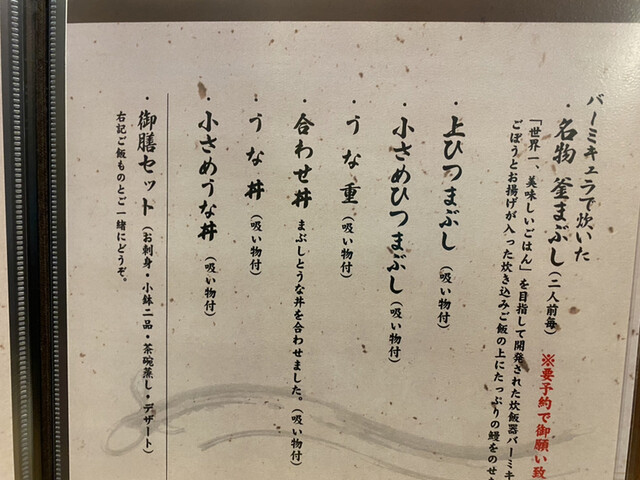 バーミキュラで炊いた
・名物 釜まぶし（二人前毎） ※要予約で御願い致
「世界一、美味しいごはん」を目指して開発された炊飯器バーミキ
ごぼうとお揚げが入った炊き込みご飯の上にたっぷりの鰻をのせま
・上ひつまぶし（吸い物付）
・小さめひつまぶし（吸い物付）
・うな重（吸い物付）
・合わせ丼 まぶしとうな丼を合わせました。（吸い物付）
・うな丼（吸い物付）
・小さめうな丼（吸い物付）
・御膳セット（お刺身・小鉢二品・茶碗蒸し・デザート）
右記ご飯ものとご一緒にどうぞ。